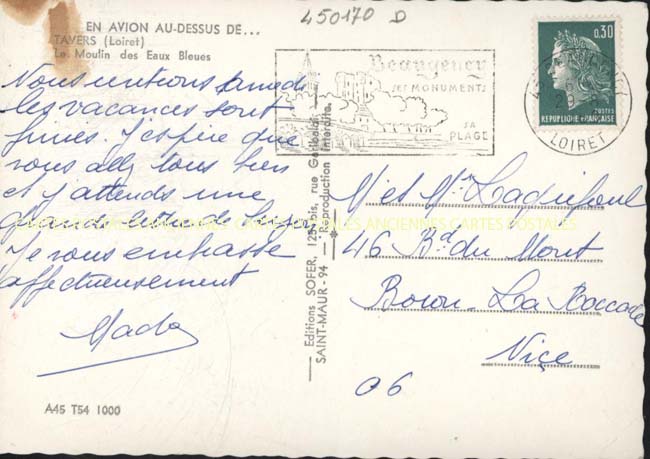 450170 D
EN AVION AU-DESSUS DE...
TAVERS (Loiret)
Le Moulin des Eaux Bleues
Nous rentrons samedi
les vacances sont
finies. J'espère que
vous allez tous bien
et j'attends une
grande lettre de
Je vous embrasse
affectueusement
Mado
A45 T54 1000
Editions SOFER, 125 bis, rue Garibaldi
SAINT-MAUR - 94 - Reproduction interdite.
Beaugency
SES MONUMENTS
SA
PLAGE
0,30
POSTES
REPUBLIQUE FRANÇAISE
LOIRET
M et Mme
46 Bd du Mont
Boron - La
Nice
06
ANCIENNES CARTES POSTALES